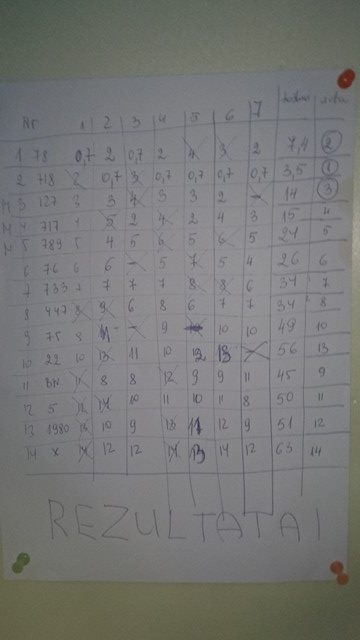 Nr 1 2 3 4 5 6 7
1 78 0,7 2 0,7 2 4 3 2 7,4 2
2 718 2 0,7 3 0,7 0,7 0,7 0,7 3,5 1
M 3 127 3 3 4 3 3 2 - 14 3
M 4 717 4 5 2 4 2 4 3 15 4
M 5 789 5 4 5 6 5 6 5 24 5
6 76 6 6 - 5 7 5 4 26 6
7 733 7 7 7 7 8 8 6 34 7
8 447 8 9 6 8 6 7 7 34 8
9 75 8 11 - 9 10 10 49 10
10 22 10 13 11 10 12 13 56 13
11 BN 11 8 8 12 9 9 11 45 9
12 5 12 14 10 11 10 11 8 50 11
13 1980 13 10 9 13 11 12 9 51 12
14 x 14 12 12 14 13 14 12 63 14
REZULTATAI